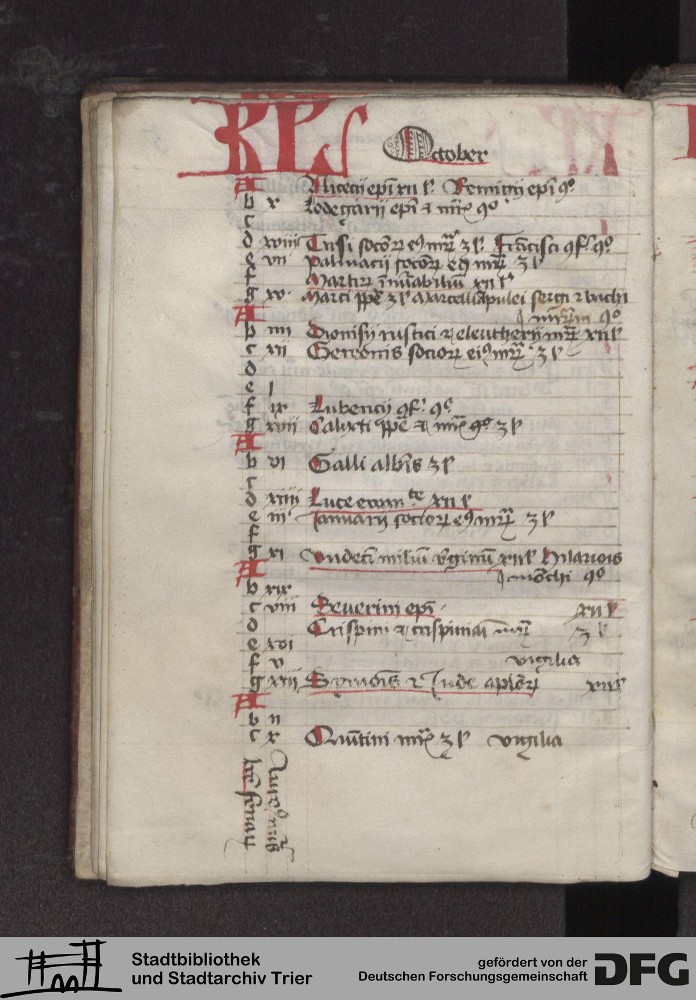 KL October
A Nicetij epi xii l Remigij epi 9o
b x Leodegarij epi et mris 9o
c
d xviii Tirsi socorum ei9 mrm 3 l Francisci 9f 9o
e vii Palmacij socorum ei9 mrm 3 l
f Martirum innumabilium xii l
g xv Marci ppe 3 l Marcelli apulei sergi et bachi
A mrm 9o
b iiii Dionisij rustici et eleutherij mrm xii l
c xii Gereonis sociorum ei9 mrm 3 l
d
e i
f ix Lubencij 9f 9o
g xvii Calixti ppe et mris 9o 3 l
A
b vi Galli albis 3 l
c
d xiiii Luce ewan te xii l
e iii Januarij sociorum ei9 mrm 3 l
f
g xi Undecim milium virginum xii l Hilarionis
A monchi 9o
b xix
c viii Severini epi xii l
d Crispini et crispiniani mrm 3 l
e xvi
f v vigilia
g xiii Symonis et Jude aplorum xii l
A
b ii
c x Quintini mris 3 l vigilia
Stadtbibliothek
und Stadtarchiv Trier
gefördert von der
Deutschen Forschungsgemeinschaft
DFG